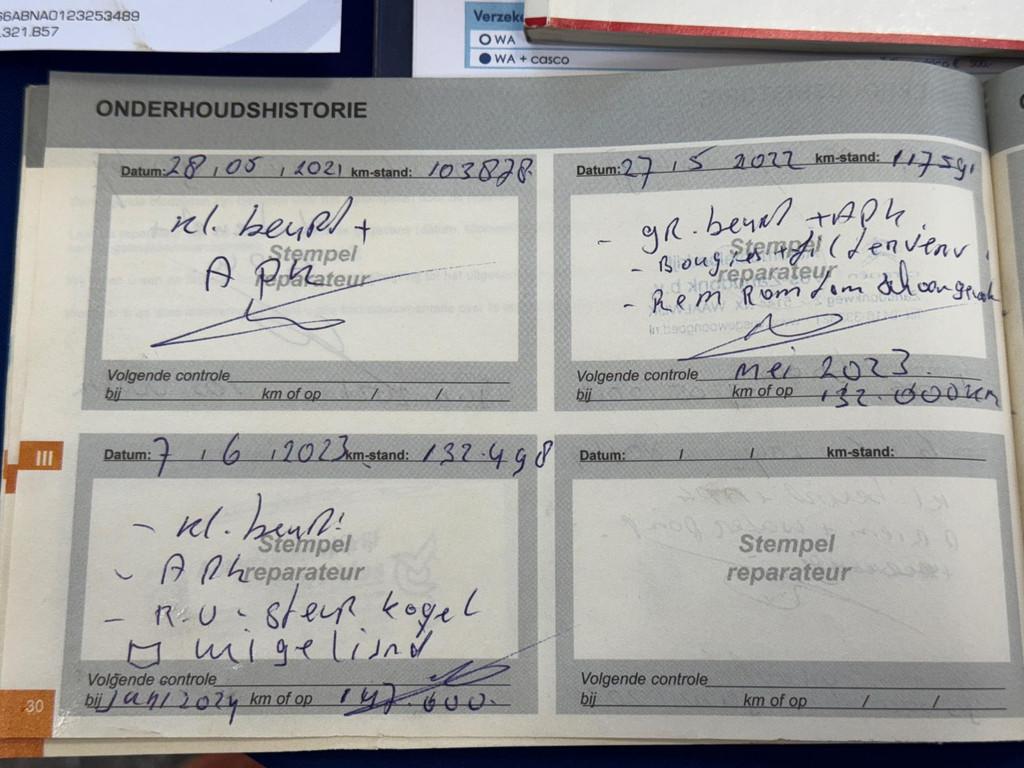 66ABNA0123253489
.321.B57
Verzeke
WA
WA + casco
ONDERHOUDSHISTORIE
Datum: 28 / 05 / 2021 km-stand: 103828
kl. beurt +
APK
Stempel
reparateur
Volgende controle
bij km of op / /
Datum: 27 / 5 2022 km-stand: 11759
- gr. beurt + APK
- Bougies + filter verv
- Rem Rondom schoongemaakt
Stempel
reparateur
Volgende controle mei 2023.
bij km of op 132.000 km
III
Datum: 7 / 6 / 2023 km-stand: 132.498
- kl. beurt
- APK
- R.V. stuur kogel
uitgelijnd
Stempel
reparateur
Volgende controle
bij juni 2024 km of op 147.000.
Datum: / / km-stand:
Stempel
reparateur
Volgende controle
bij km of op / /
30